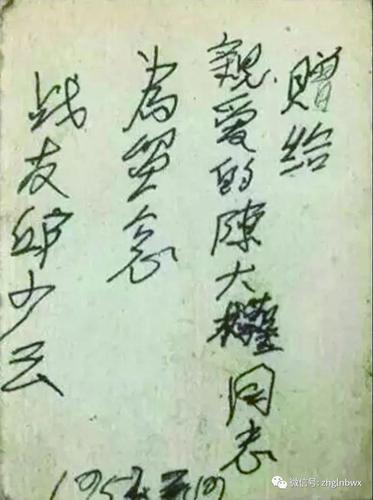 赠给
親爱的陳大同志
為留念
战友邱少云
微信号: zhglnbwx